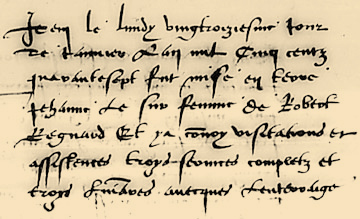 Item le lundy vingtroiziesme jour
de Januier L an mil Cinq centz
quarantesept fut mise en terre
Jehanne Le sur femme de Robert
Regnard Et ya convoy visitations et
assistences troys services completz et
troys dimares auecques Lenterraige